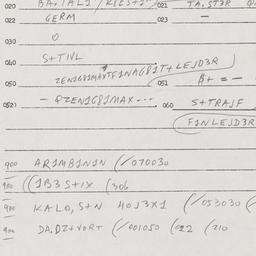 020 021 TA.ST3R
022 GERM 023 -
030 O
040 S+TIVL
050 ZEN1G81MAXTF1NAG81T+LEJD3R 051 B+ = -
0521 - QZEN1G81MAX-.. 060 S+TRAJF
F1NLEJD3R
900 AR1MB1N1N (/070030
900 ((1B3S+1X (306
900 KALO,S+N 40J3X1 (/053030 (
900 DA.DZ+VORT (/001050 (022 (210